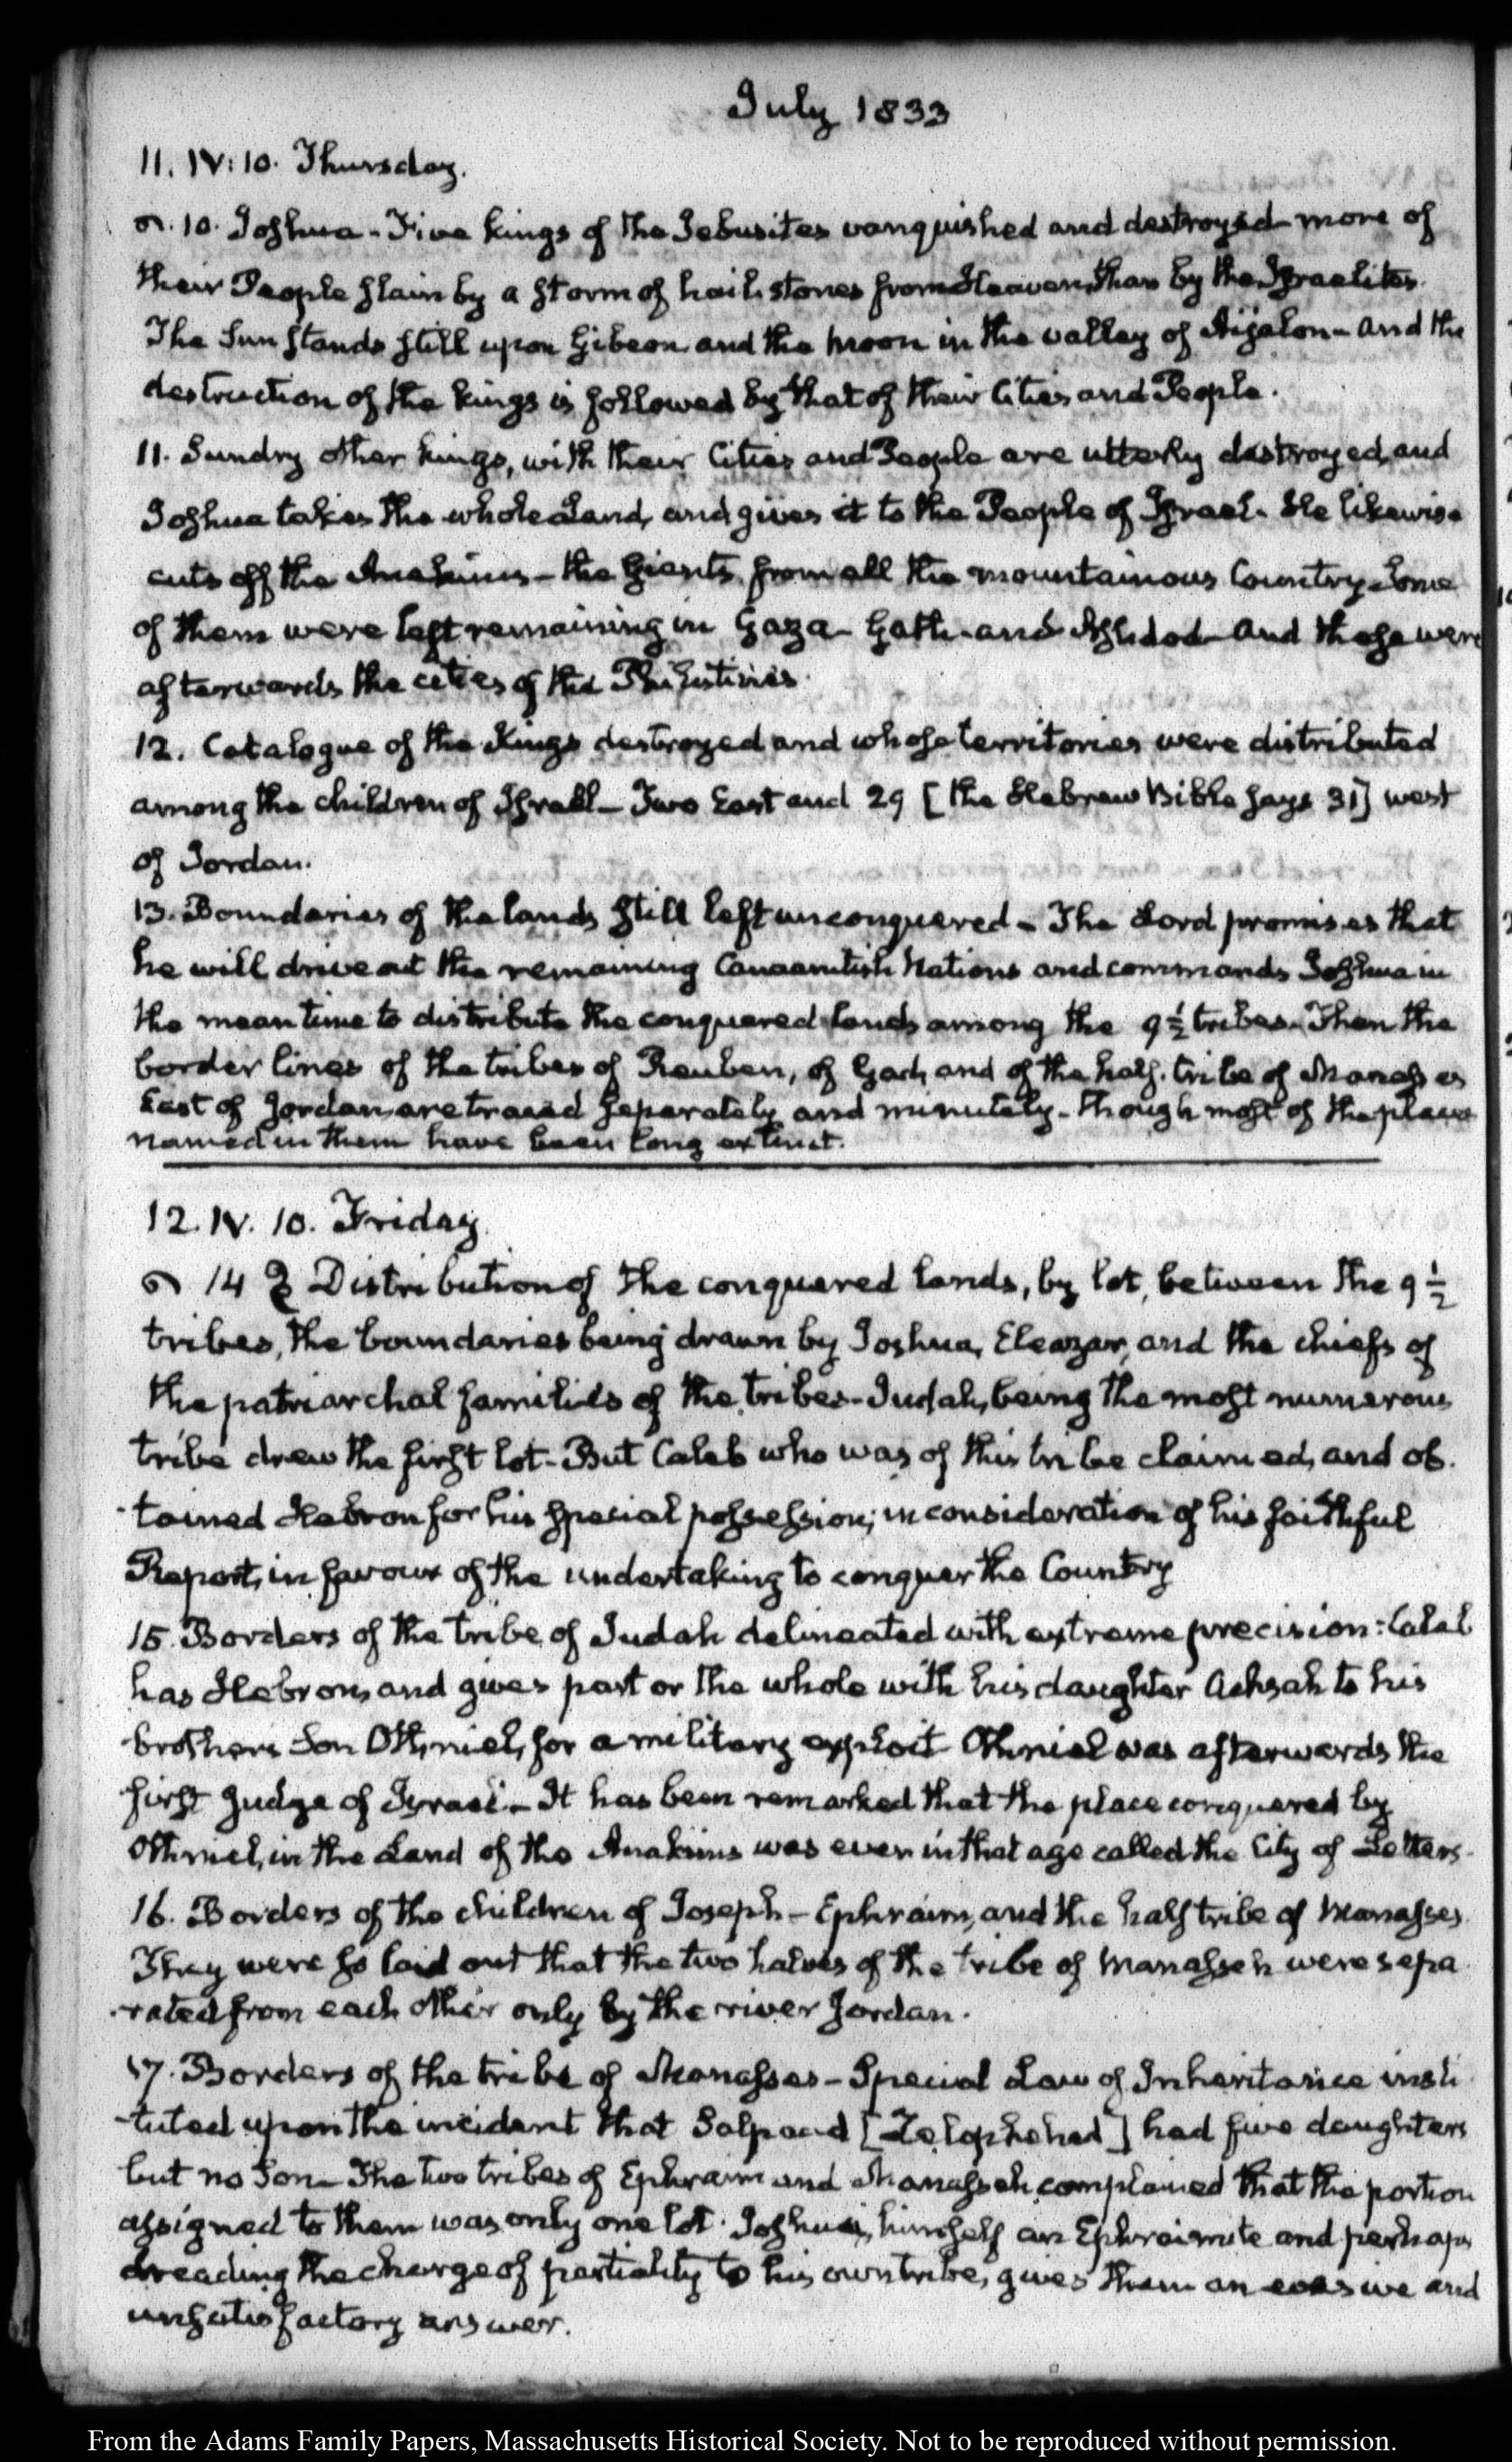 July 1833
11. IV:10. Thursday.
10. Joshua - Five kings of the Jebusites vanquished and destroyed more of
their People slain by a storm of hailstones from Heaven, than by the Israelites.
The Sun stands still upon Gibeon and the moon in the valley of Aijalon - and the
destruction of the kings is followed by that of their Cities and People.
11. Sundry other kings, with their Cities and People are utterly destroyed, and
Joshua takes the whole Land, and gives it to the People of Israel. He likewise
cuts off the Anakims - the Giants, from all the mountainous Country - Some
of them were left remaining in Gaza - Gath - and Ashdod - and these were
afterwards the cities of the Philistines.
12. Catalogue of the Kings destroyed and whose territories were distributed
among the children of Israel - Two East and 29 [the Hebrew Bible says 31] west
of Jordan.
13. Boundaries of the lands still left unconquered - The Lord promises that
he will drive out the remaining Canaanitish Nations and commands Joshua in
the mean time to distribute the conquered lands among the 9½ tribes. Then the
border lines of the tribes of Reuben, of Gad, and of the half tribe of Manasses
East of Jordan, are traced separately and minutely - though most of the places
named in them have been long extinct.
12. IV. 10. Friday
14 Distribution of the conquered lands, by lot, between the 9½
tribes, the boundaries being drawn by Joshua, Eleazar, and the chiefs of
the patriarchal families of the tribes - Judah, being the most numerous
tribe drew the first lot - But Caleb who was of this tribe claimed, and ob-
-tained Hebron for his special possession; in consideration of his faithful
Report, in favour of the undertaking to conquer the Country
15. Borders of the tribe of Judah delineated with extreme precision: Caleb
has Hebron, and gives part or the whole with his daughter Achsah to his
brothers Son Othniel, for a military exploit Othniel was afterwards the
first Judge of Israel - It has been remarked that the place conquered by
Othniel, in the Land of the Anakims was even in that age called the City of Letters.
16. Borders of the children of Joseph - Ephraim, and the half tribe of Manasses.
They were so laid out that the two halves of the tribe of Manasseh were sepa
-rated from each other only by the river Jordan.
17. Borders of the tribe of Manasses - Special Law of Inheritance insti
-tuted upon the incident that Salpaad [Zelophehad] had five daughters
but no Son - The two tribes of Ephraim and Manasseh complained that the portion
assigned to them was only one lot. Joshua, himself an Ephraimite and perhaps
dreading the charge of partiality to his own tribe, gives them an evasive and
unsatisfactory answer.
From the Adams Family Papers, Massachusetts Historical Society. Not to be reproduced without permission.